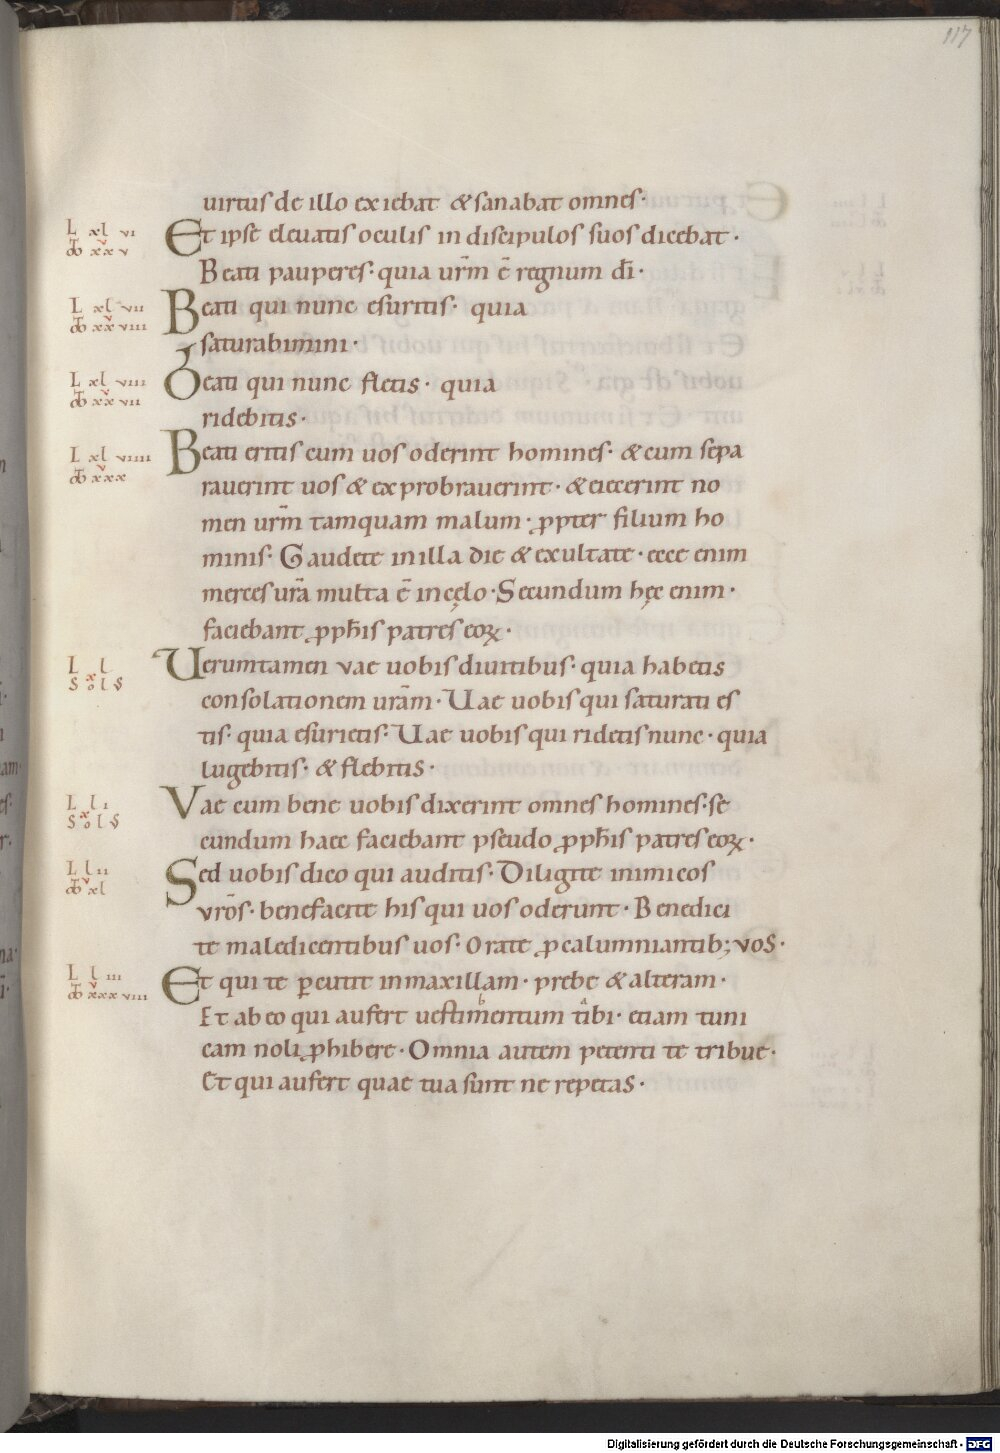 117
virtus de illo exiebat & sanabat omnes·
L xl vi
Et ipse elevatis oculis in discipulos suos dicebat·
M xxv
Beati pauperes· quia ur̄m ē regnum dī·
L xl vii
Beati qui nunc esuritis· quia
M xxviii
saturabimini·
L xl viii
Beati qui nunc fletis· quia
M xxvii
ridebitis·
L xl viiii
Beati eritis cum uos oderint homines· & cum sepa
M xxx
rauerint uos & exprobrauerint· & eiecerint no
men ur̄m tamquam malum· ꝓpter filium ho
minis· Gaudete in illa die & exultate· ecce enim
merces ur̄a multa ē in cęlo· Secundum hęc enim·
faciebant ꝓph̄is patres eoꝝ·
L l
Uerumtamen vae uobis diuitibus· quia habetis
SOLS
consolationem ur̄am· Uae uobis qui saturati es
tis· quia esurietis· Uae uobis qui ridetis nunc· quia
lugebitis· & flebitis·
L li
Vae cum bene uobis dixerint omnes homines· se
SOLS
cundum haec faciebant pseudo ꝓph̄is patres eoꝝ·
L lii
Sed uobis dico qui auditis· Diligite inimicos
M xl
vr̄os· benefacite his qui uos oderunt· Benedici
te maledicentibus uos· Orate ꝓ calumniantib; vos·
L liii
Et qui te ꝑcutit in maxillam· prebe & alteram·
M xxxviii
Et ab eo qui aufert uestimentum tibi· etiam tuni
cam noli ꝓhibere· Omnia autem petenti te tribue·
Et qui aufert quae tua sunt ne repetas·
Digitalisierung gefördert durch die Deutsche Forschungsgemeinschaft - DFG